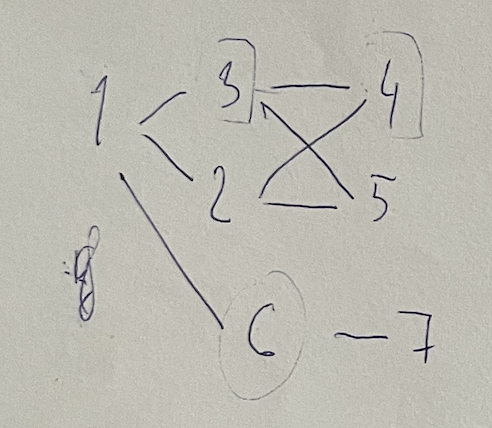 1 3 4
2 5
6 7